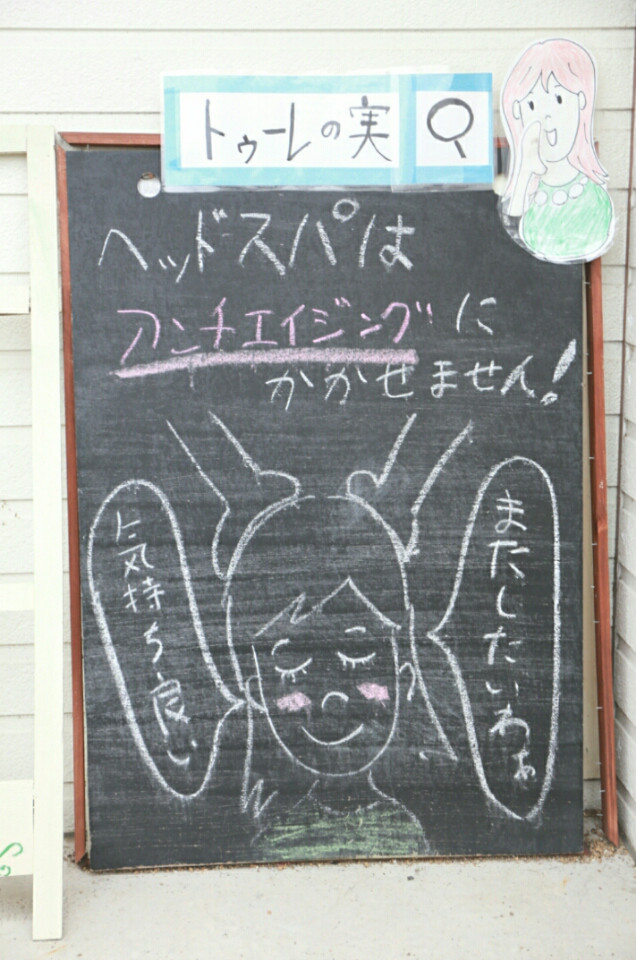 トゥーレの実
ヘッドスパは
アンチエイジングに
かかせません!
またしたいわぁ
気持ち良い